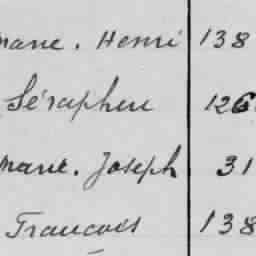 Marie. Henri 138
Séraphin 126
Marie. Joseph 31
Francois 138